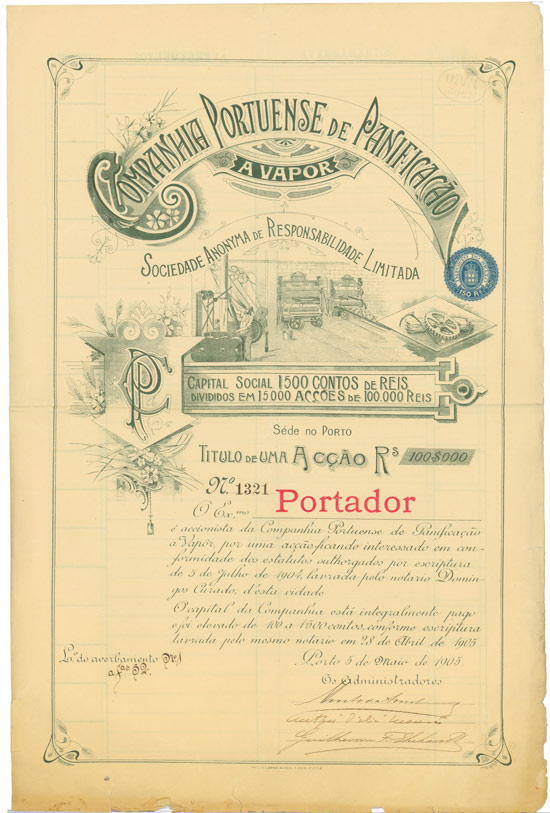 COMPANHIA PORTUENSE DE PANIFICAÇÃO
A VAPOR
SOCIEDADE ANONYMA DE RESPONSABILIDADE LIMITADA
150 RS
CP
CAPITAL SOCIAL 1500 CONTOS DE REIS
DIVIDIDOS EM 15000 ACÇÕES DE 100.000 REIS
Séde no Porto
TITULO DE UMA ACÇÃO RS 100$000
Nº 1321 Portador
O Ex.mo
é accionista da Companhia Portuense de Panificação
a Vapôr, por uma acção ficando interessado em con-
formidade dos estatutos outhorgados por escriptura
de 5 de Julho de 1904, lavrada pelo notario Domin-
gos Curado, d'esta cidade
O capital da Companhia está integralmente pago
e foi elevado de 400 a 1500 contos, conforme escriptura
lavrada pelo mesmo notario em 28 de Abril de 1905.
Lº do averbamento Nº 1
a fos 52.
Porto 5 de Maio de 1905
Os Administradores